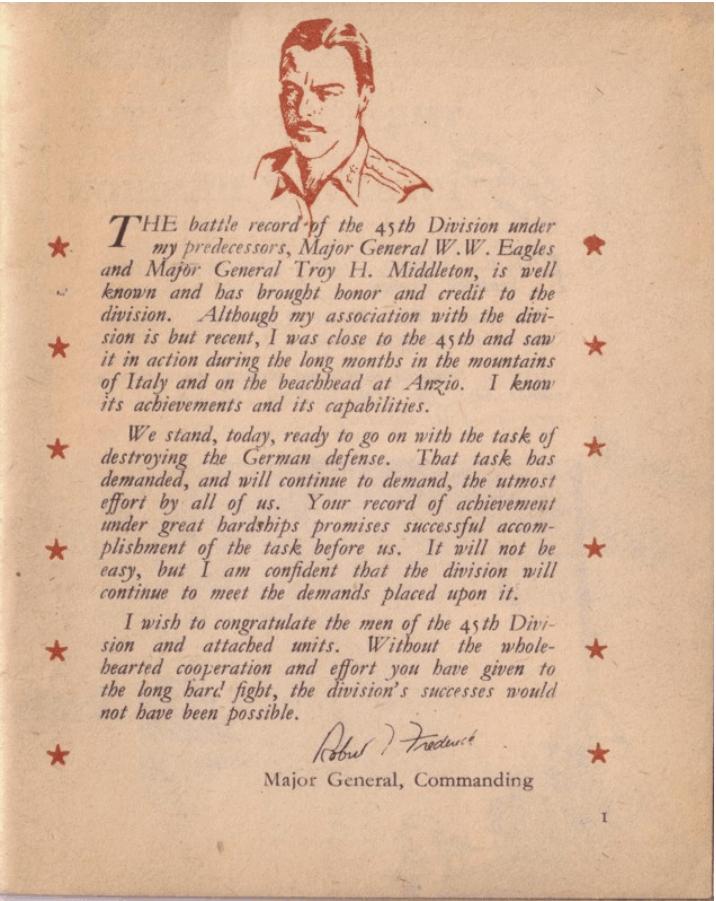 THE battle record of the 45th Division under
my predecessors, Major General W.W. Eagles
and Major General Troy H. Middleton, is well
known and has brought honor and credit to the
division. Although my association with the divi-
sion is but recent, I was close to the 45th and saw
it in action during the long months in the mountains
of Italy and on the beachhead at Anzio. I know
its achievements and its capabilities.
We stand, today, ready to go on with the task of
destroying the German defense. That task has
demanded, and will continue to demand, the utmost
effort by all of us. Your record of achievement
under great hardships promises successful accom-
plishment of the task before us. It will not be
easy, but I am confident that the division will
continue to meet the demands placed upon it.
I wish to congratulate the men of the 45th Divi-
sion and attached units. Without the whole-
hearted cooperation and effort you have given to
the long hard fight, the division's successes would
not have been possible.
Robert T Frederick
Major General, Commanding
1